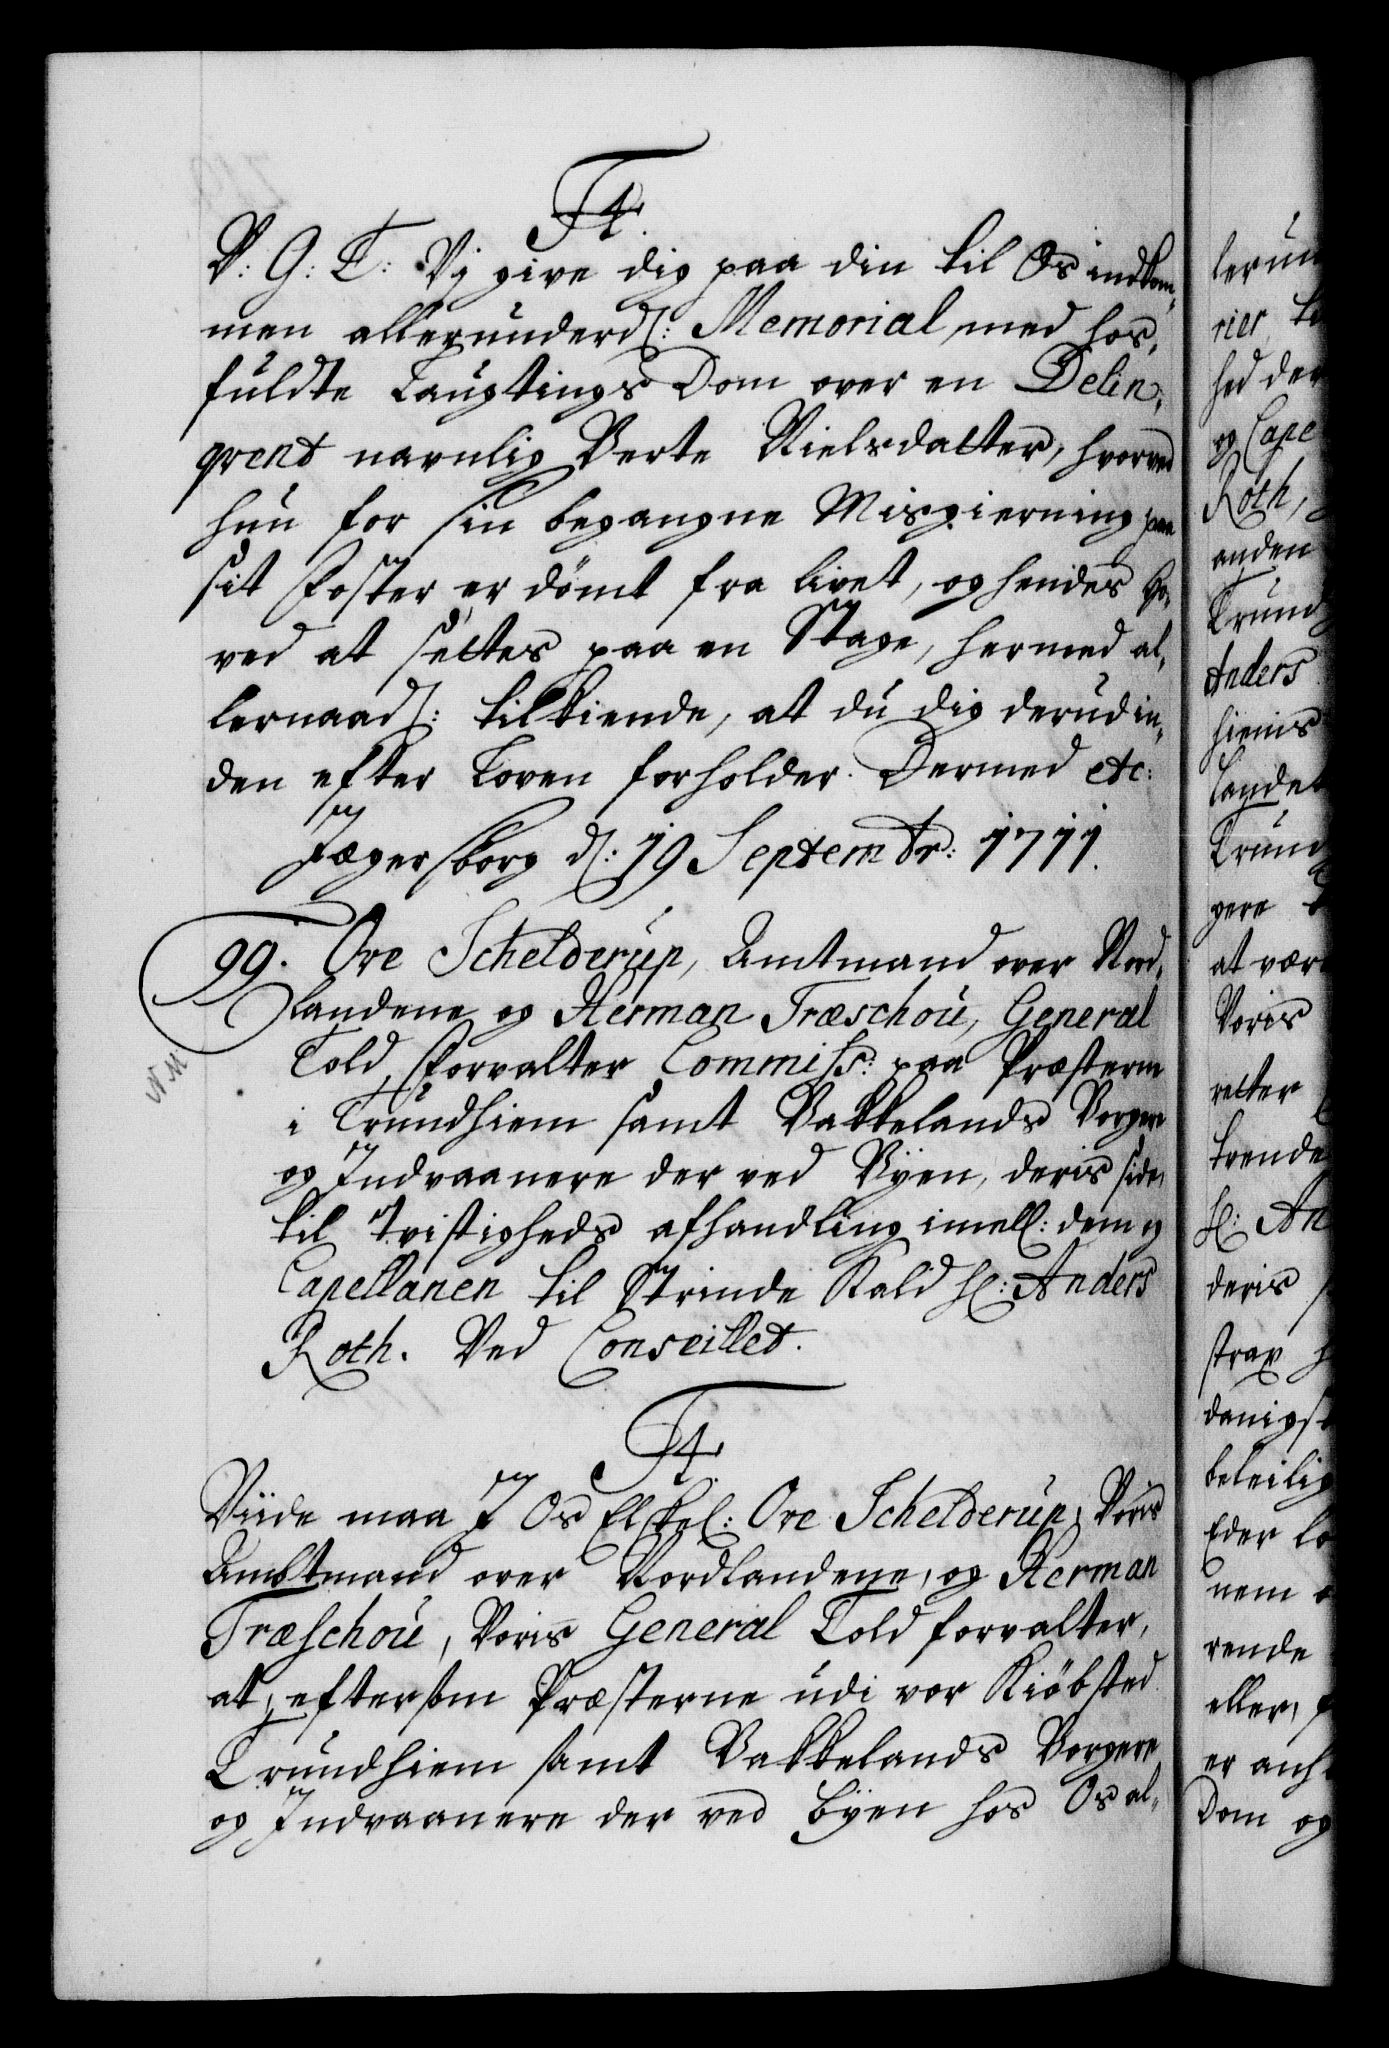 F4.
V: G: T: Vj give dig paa din til Os indkom-
men allerunderd: Memorial, med hos-
fuldte Laugtings Dom over en Delin-
qvent navnlig Berte Nielsdatter, hvorved
hun for sin begangne Misgierning paa
sit Foster er dömt fra livet, og hendes Ho-
ved at settes paa en Stage, hermed al-
lernaad: tilkiende, at du dig derudin-
den efter Loven forholder. Dermed etc:
Jægersborg d: 19 Septembr: 1711.
99. Ove Schelderup, Amtmand over Nord-
landene og Herman Træschou, General
Told Forvalter Commiss: paa Præsterne
i Trundhiem samt Bakkelands Borgere
og Indvaanere der ved Byen, deris side,
til Tvistigheds afhandling imell: dem og
Capellanen til Strinde Kald hr: Anders
Roth. Ved Conseillet.
NM
F4.
Viide maa I Os Elskel: Ove Schelderup, Voris
Ambtmand over Nordlandene, og Herman
Træschou, Voris General Told forvalter,
at, eftersom Præsterne udi vor Kiöbsted
Trundhiem samt Bakkelands Borgere
og Indvaanere der ved byen hos Os al-
lerun
rier
hed der
og Cape
Roth,
anden
Trundh
Anders
hiems
Landet
Trund
gere
at være
Voris
retter
trende
hr: An
deris
strax
danigst
beleilig
Eder
nem
rende
eller,
er anh
Dom og